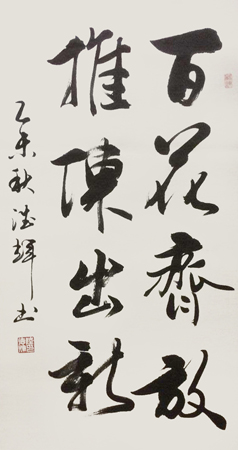 百花齊放
推陳出新
乙未秋德輝書